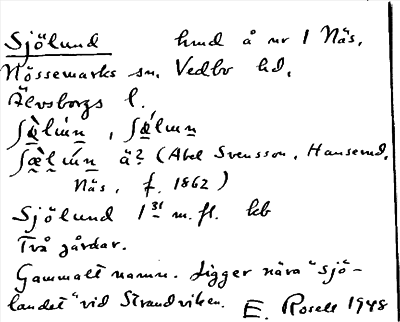 Sjölund hmd å nr 1 Näs,
Nössemarks sn. Vedbo hd,
Älvsborgs l.
ä2 (Abel Svensson, Hansemd,
Näs, f. 1862)
Sjölund 1 31 m. fl. kb
Två gårdar.
Gammalt namn. Ligger nära "sjö-
landet" vid Strandviken. E. Rosell 1948